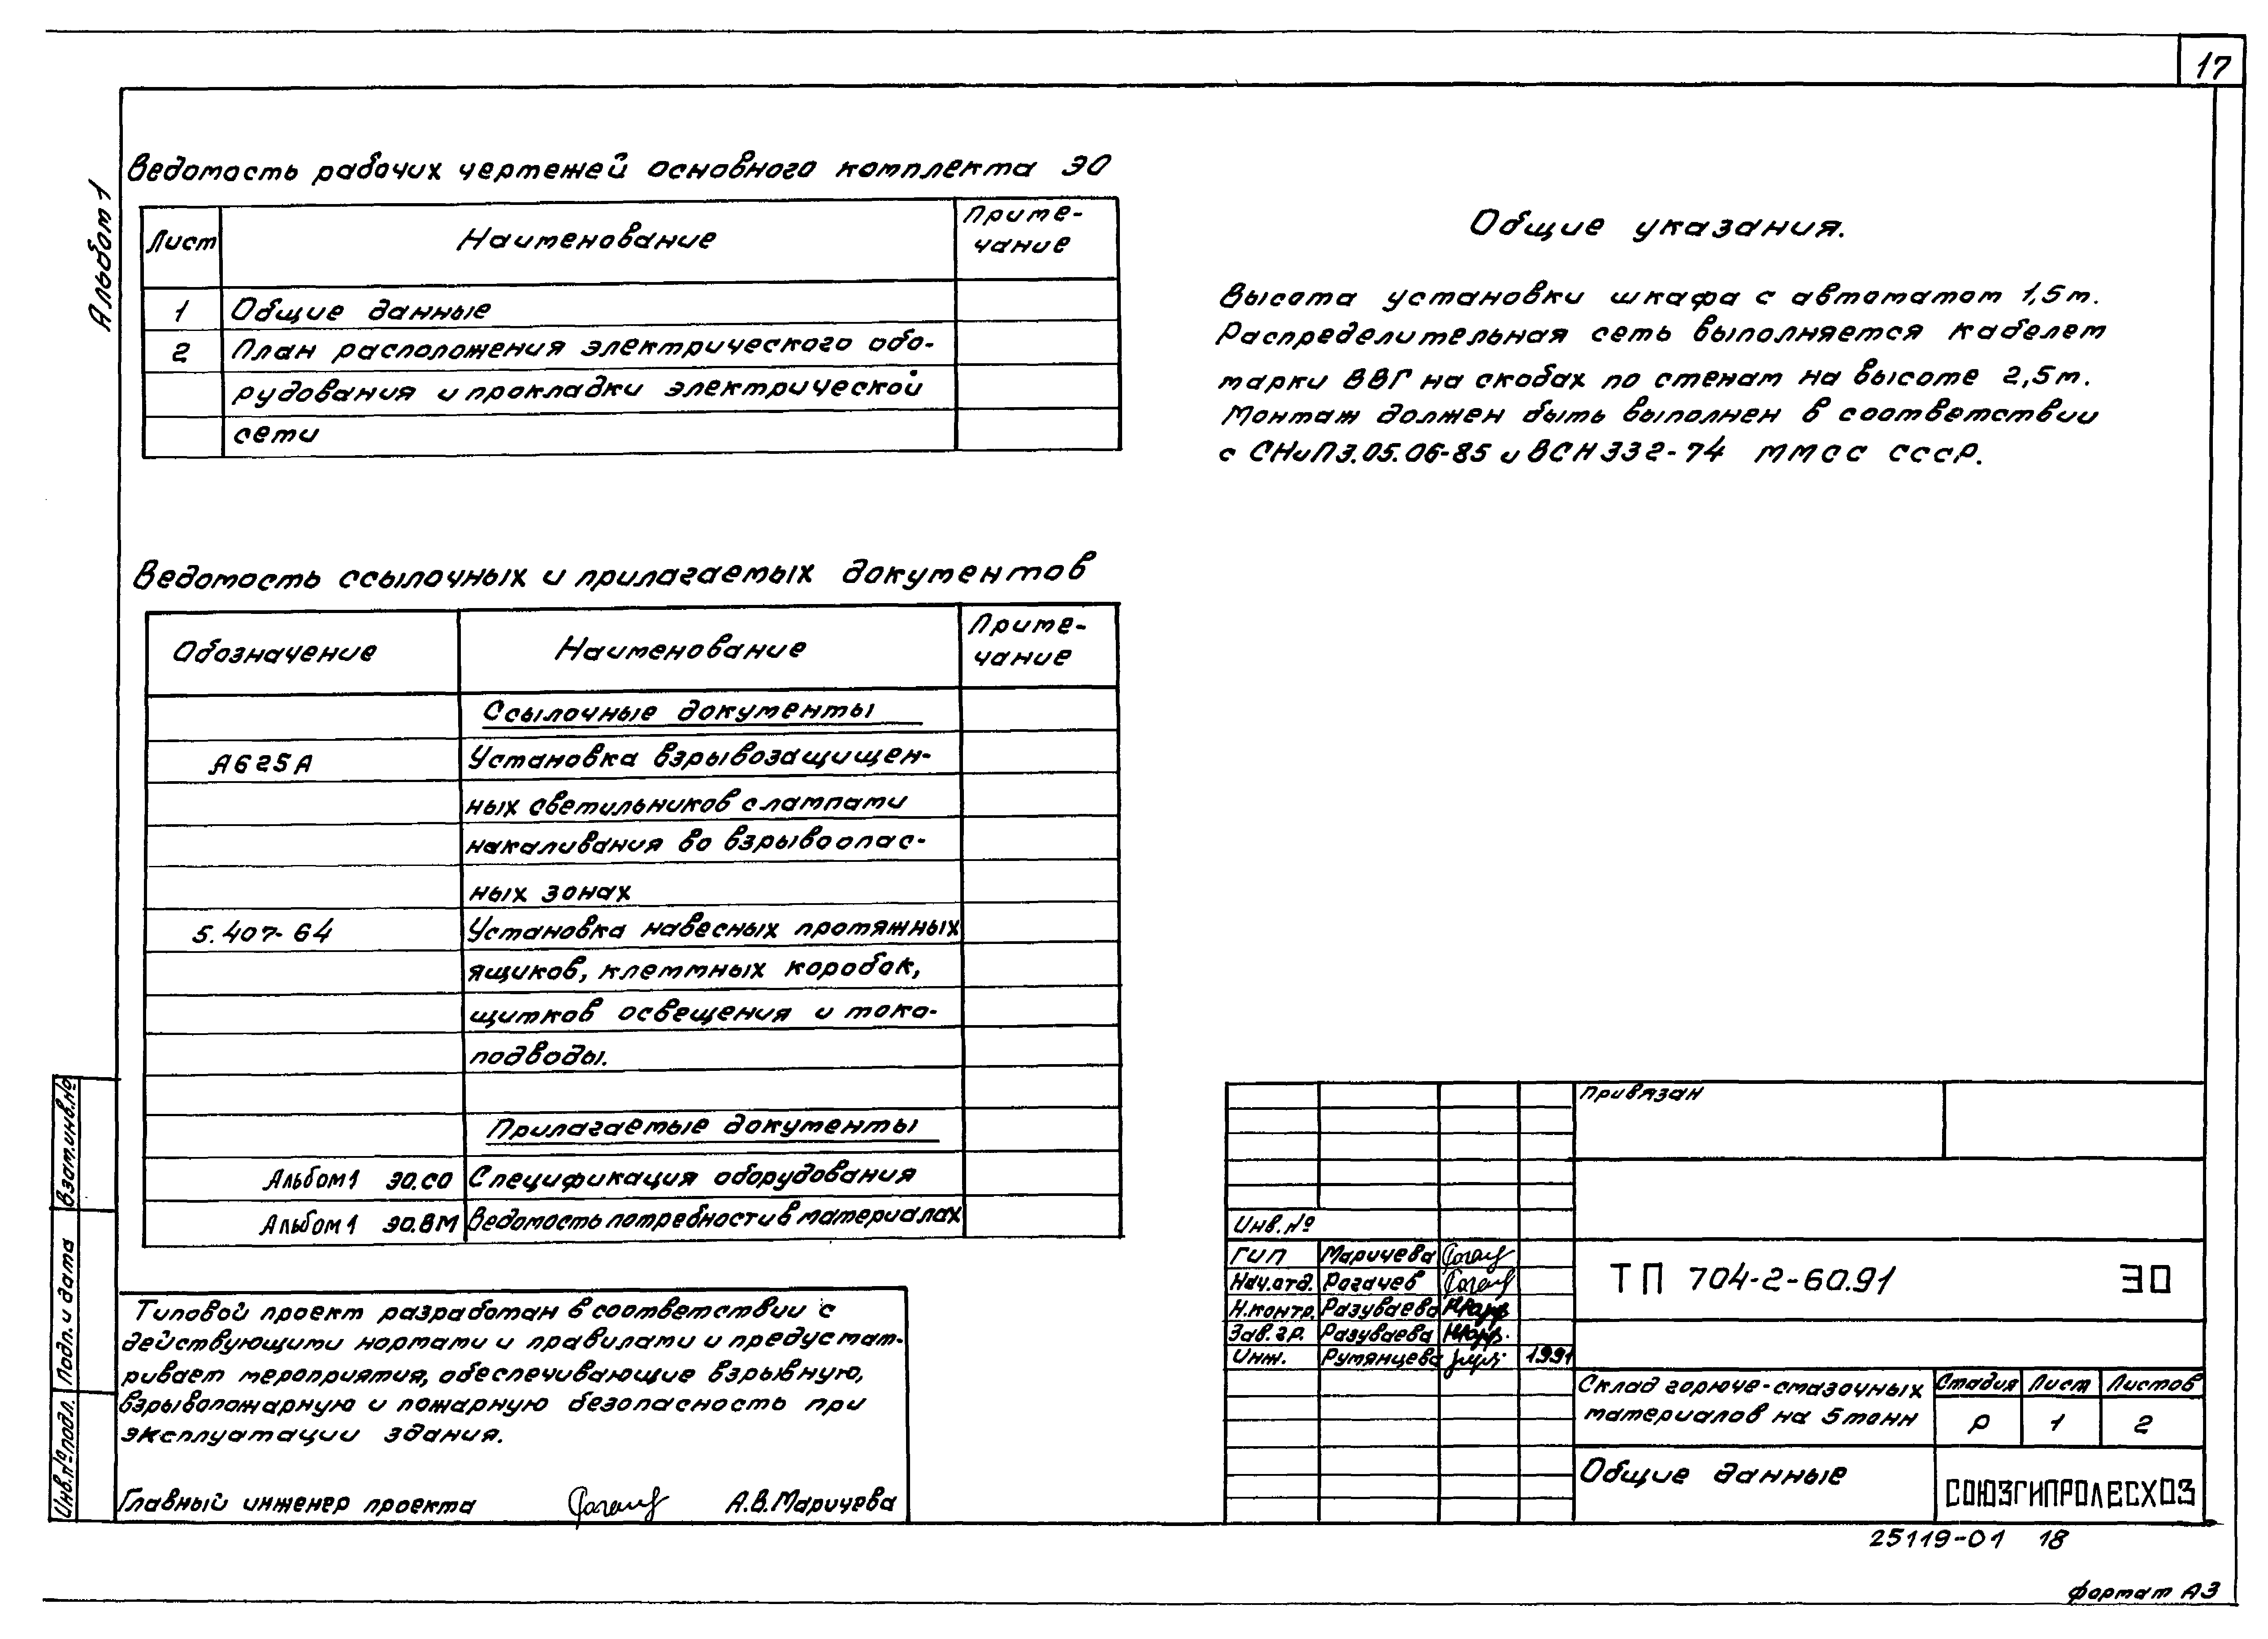 17
Альбом 1
Ведомость рабочих чертежей основного комплекта ЭО
Лист
Наименование
Приме-
чание
1
Общие данные
2
План расположения электрического обо-
рудования и прокладки электрической
сети
Общие указания.
Высота установки шкафа с автоматом 1,5м.
Распределительная сеть выполняется кабелем
марки ВВГ на скобах по стенам на высоте 2,5м.
Монтаж должен быть выполнен в соответствии
с СНиП3.05.06-85 и ВСН 332-74 ММСС СССР.
Ведомость ссылочных и прилагаемых документов
Обозначение
Наименование
Приме-
чание
Ссылочные документы
А625А
Установка взрывозащищен-
ных светильников с лампами
накаливания во взрывоопас-
ных зонах
5.407-64
Установка навесных протяжных
ящиков, клеммных коробок,
щитков освещения и токо-
подводы.
Прилагаемые документы
Альбом1 ЭО.СО
Спецификация оборудования
Альбом1 ЭО.ВМ
Ведомость потребности в материалах
Типовой проект разработан в соответствии с
действующими нормами и правилами и предусмат-
ривает мероприятия, обеспечивающие взрывную,
взрывопожарную и пожарную безопасность при
эксплуатации здания.
Главный инженер проекта А.В.Маричева
Взам.инв.№
Подп. и дата
Инв.№подл.
Привязан
Инв.№
ГИП Маричева
Нач.отд. Рогачев
Н.контр. Разуваева
Зав.гр. Разуваева
Инж. Румянцева 1991
ТП 704-2-60.91 ЭО
Склад горюче-смазочных
материалов на 5 тонн
Стадия Лист Листов
Р 1 2
Общие данные
СОЮЗГИПРОЛЕСХОЗ
25119-01 18
формат А3